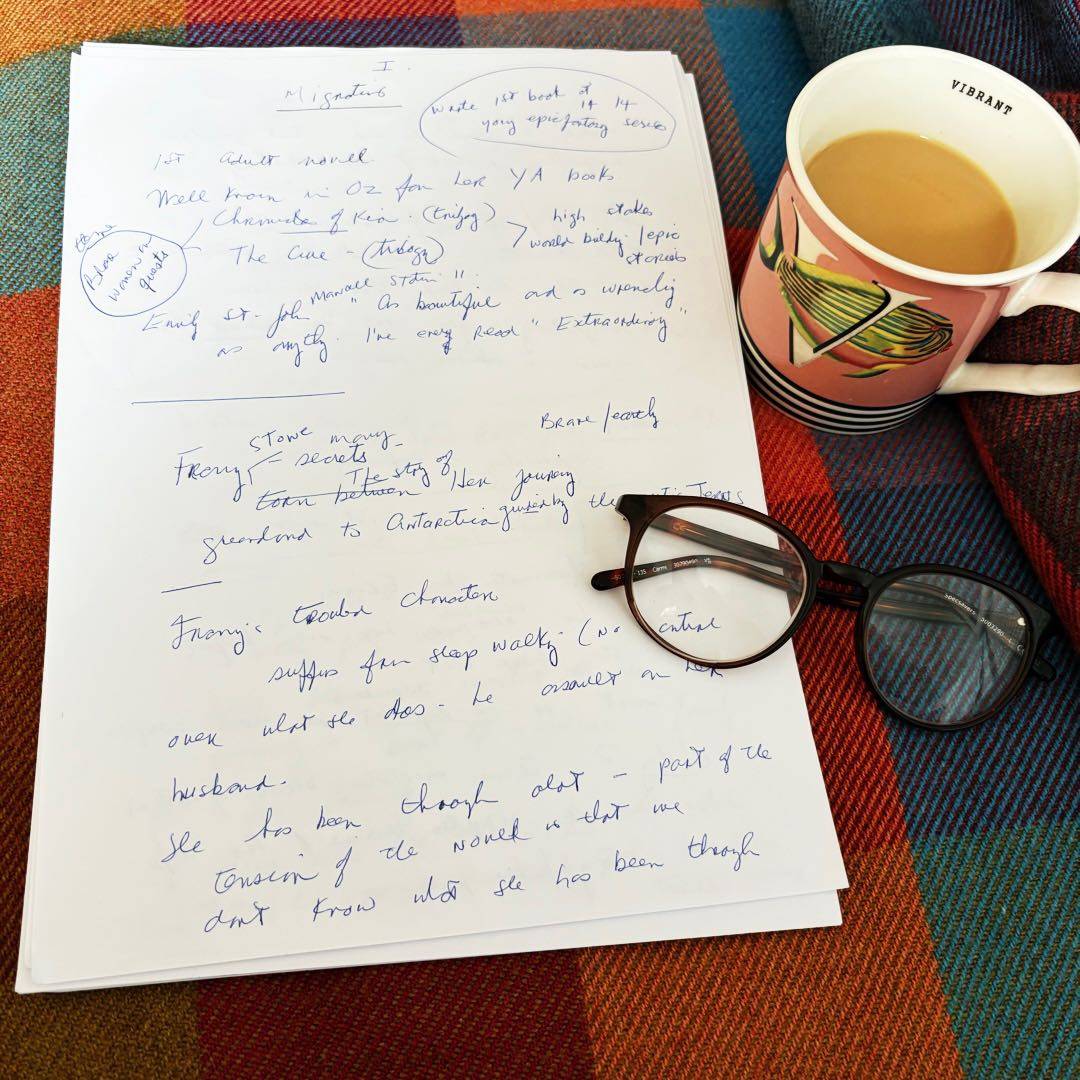 I.
Migrations
Write 1st book at
14
young epic fantasy series
1st adult novel
Well known in Oz for her YA books
Chronicles of Kaya. (trilogy)
high stakes
world building / epic
stories
theme
Brave
women on
quests
The Cure - (trilogy)
Emily St. John Mandel
" As beautiful and as wrenching
as anything I've every Read" "Extraordinary"
Brave / earthly
Franny
many
secrets
torn between The story of Her journey
greenland to Antarctica guided by the Terns
Franny is troubled character
suffers from sleep walking. (No control
over what she does - he assault on her
husband.
She has been through alot - part of the
tension of the novel is that we
don't know what she has been through
VIBRANT
V
135
specsavers